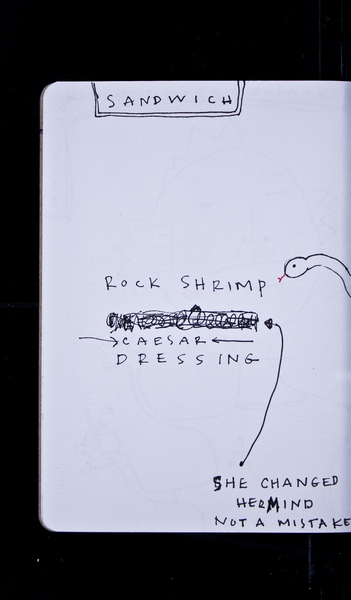 SANDWICH
ROCK SHRIMP
CAESAR
DRESSING
SHE CHANGED
HER MIND
NOT A MISTAKE